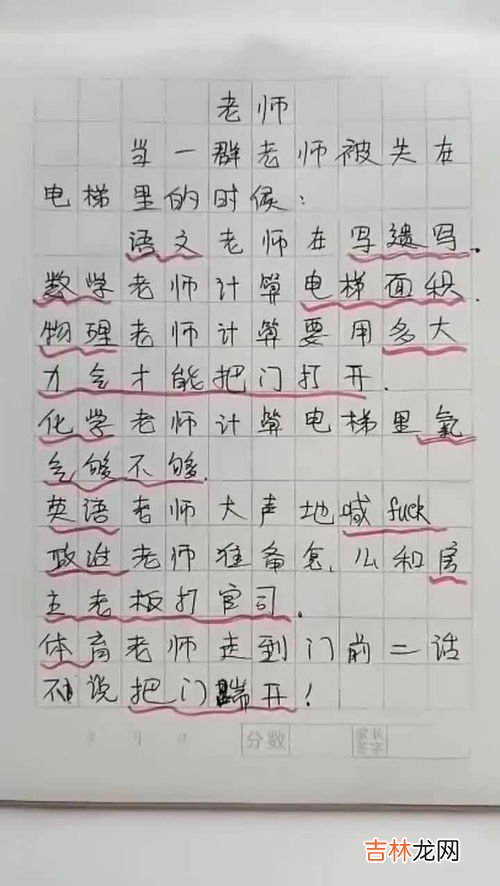 老师
当一群老师被关在
电梯里的时候:
语文老师在写遗写.
数学老师计算电梯面积.
物理老师计算要用多大
力气才能把门打开.
化学老师计算电梯里氧
气够不够.
英语老师大声地喊fuck
政治老师准备怎么和房
主老板打官司.
体育老师走到门前二话
不说把门踹开!
年 月 日 分数 家长签字
吉林龙网